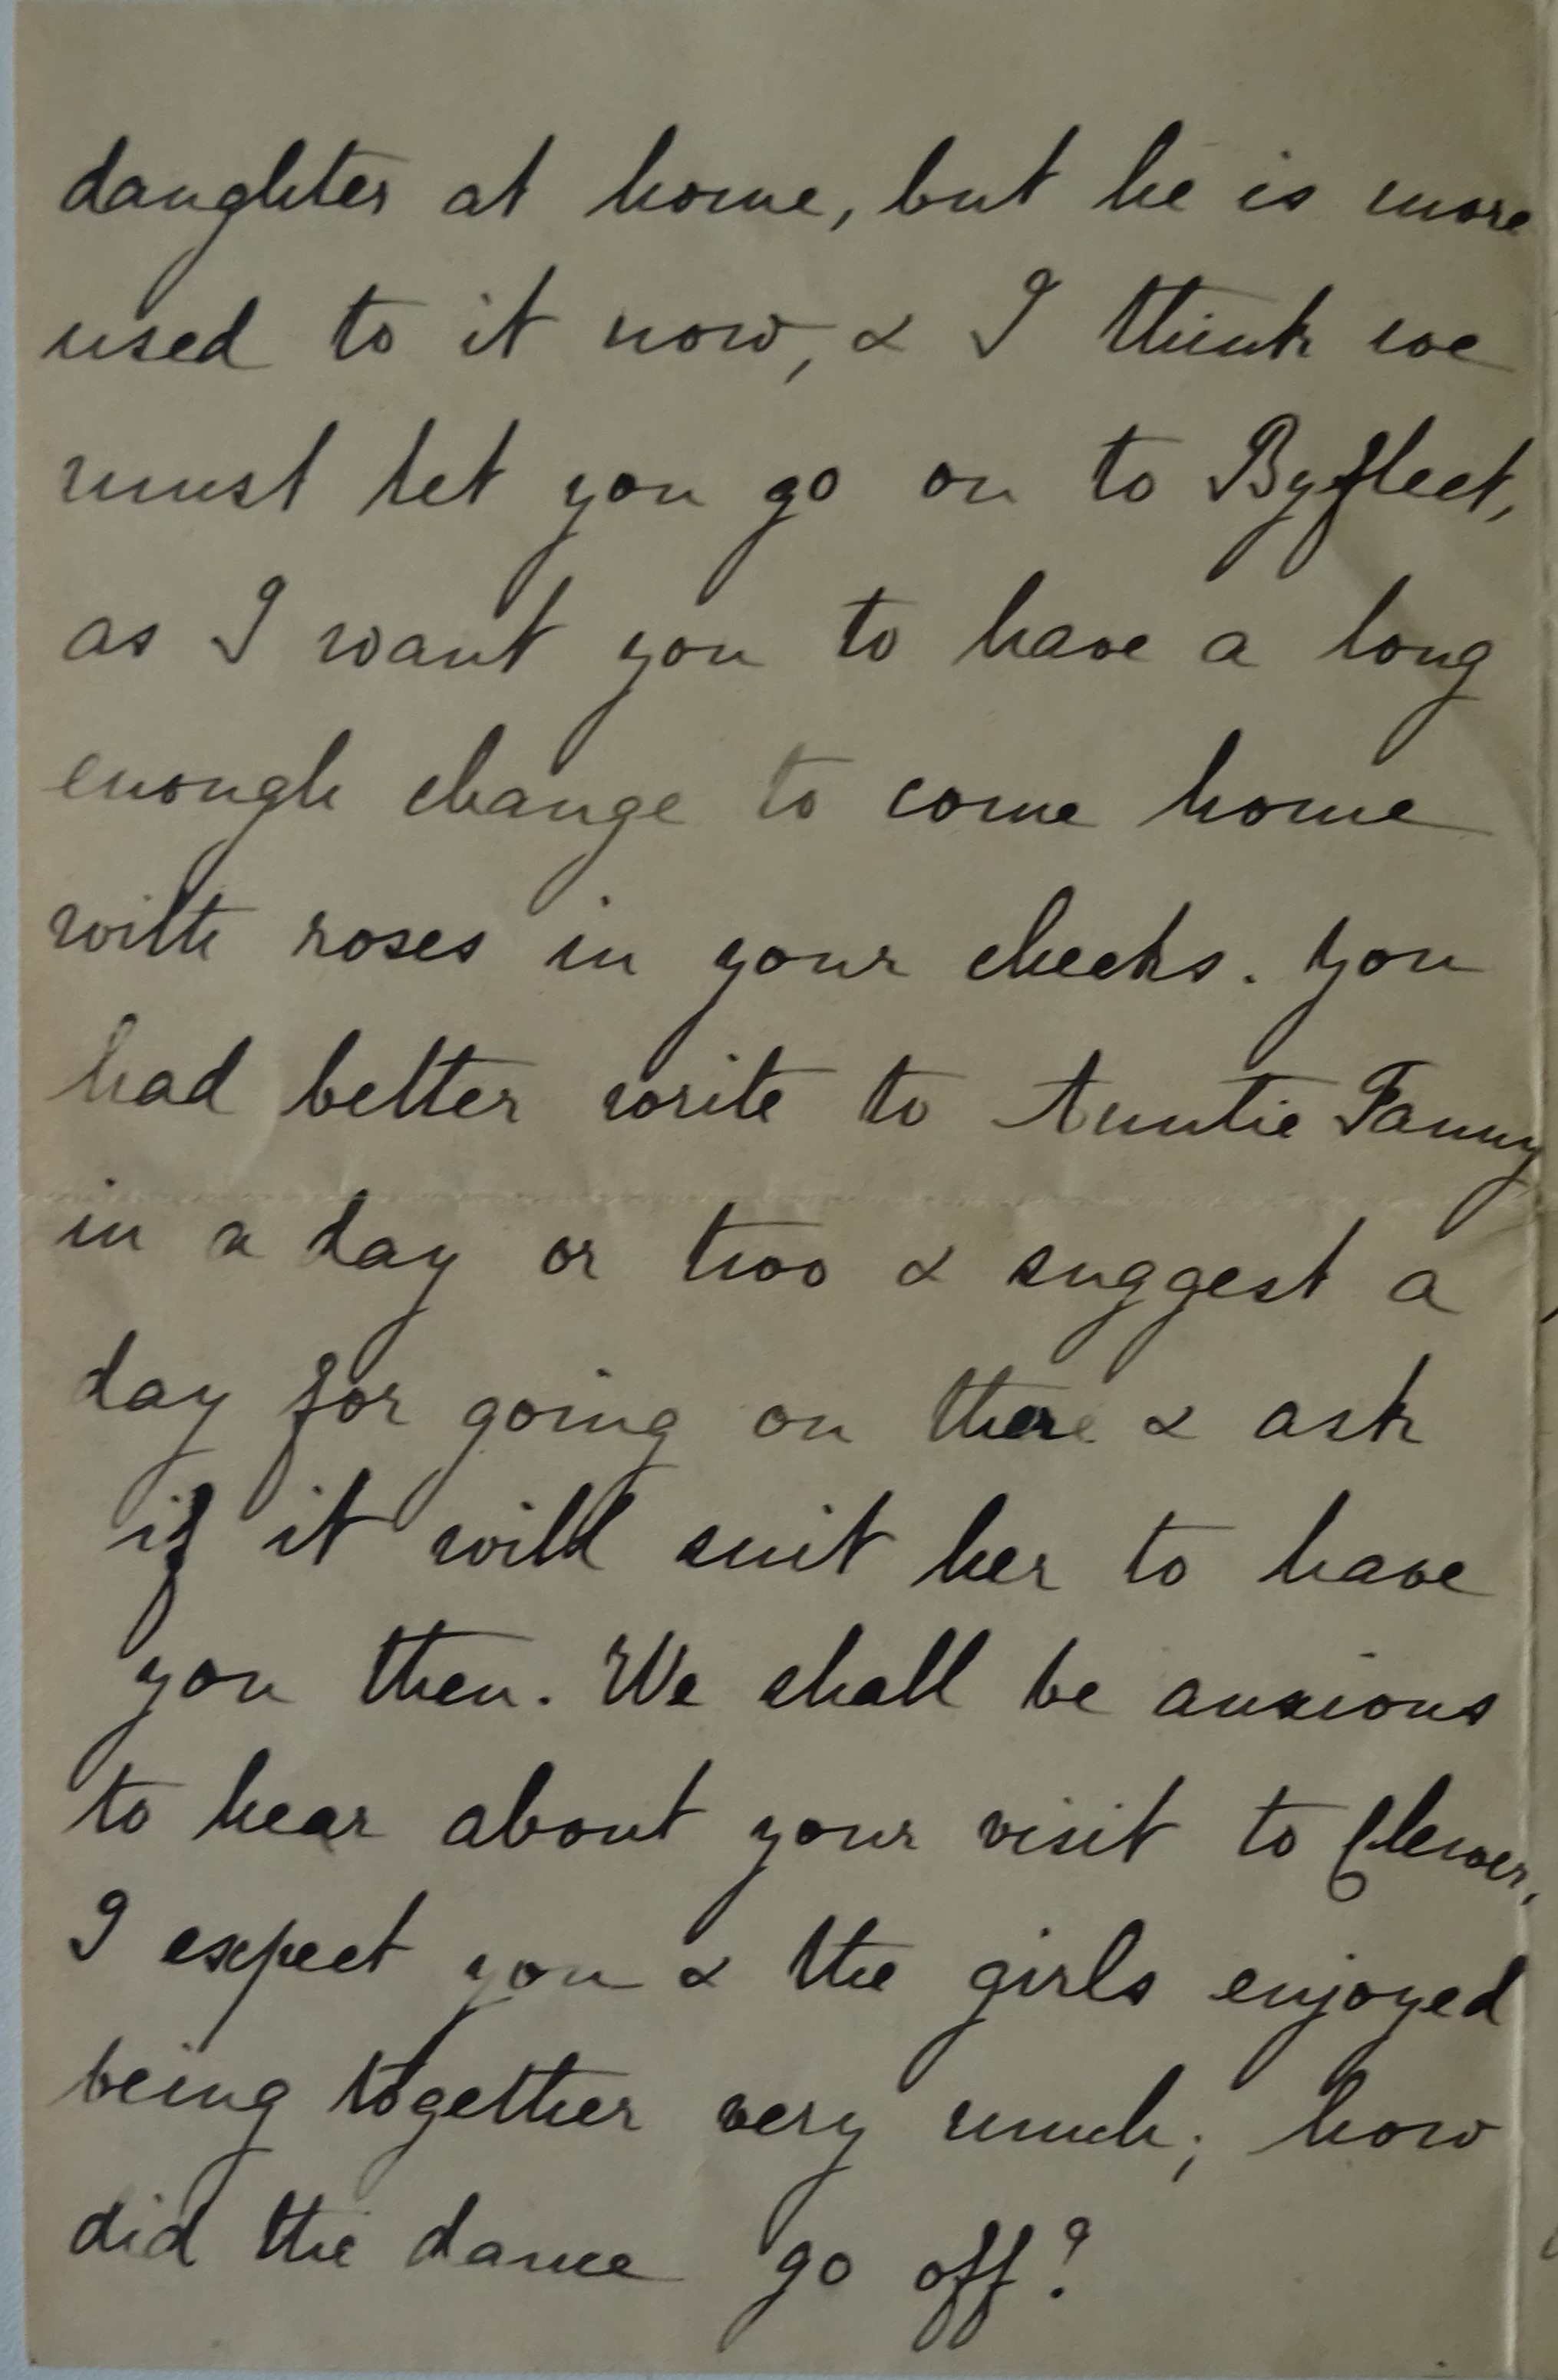 daughter at home, but he is more
used to it now, & I think we
must let you go on to Byfleet,
as I want you to have a long
enough change to come home
with roses in your cheeks. You
had better write to Auntie Fanny
in a day or two & suggest a
day for going on there & ask
if it will suit her to have
you then. We shall be anxious
to hear about your visit to Clewer,
I expect you & the girls enjoyed
being together very much; how
did the dance go off?